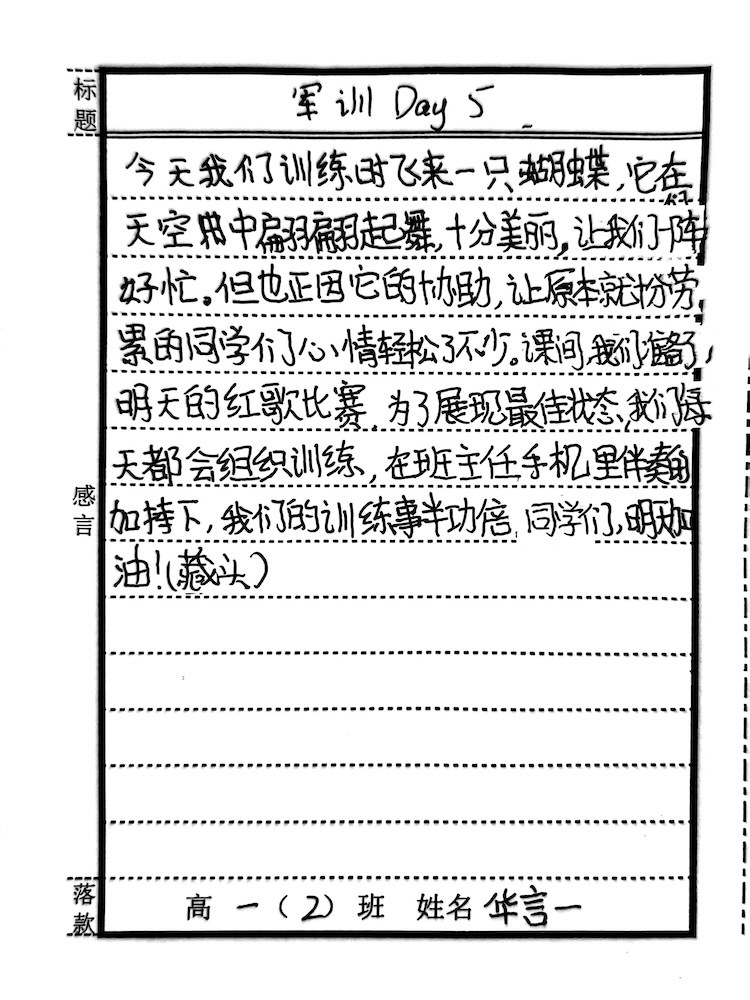 标题
军训 Day 5
今天我们训练时飞来一只蝴蝶,它在
天空典中翩翩起舞,十分美丽,让我们一阵
好忙。但也正因它的协助,让原本就十分劳
累的同学们心情轻松了不少。课间,我们准备了
明天的红歌比赛,为了展现最佳状态,我们每
天都会组织训练,在班主任手机里伴奏的
加持下,我们的训练事半功倍,同学们,明天加
油!(藏头)
感言
落款
高一(2)班 姓名 华言一